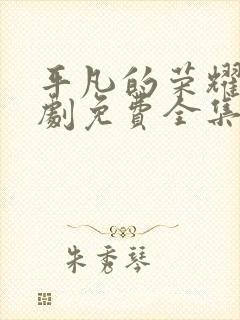 平凡的荣耀
劇免費全集
朱秀琴